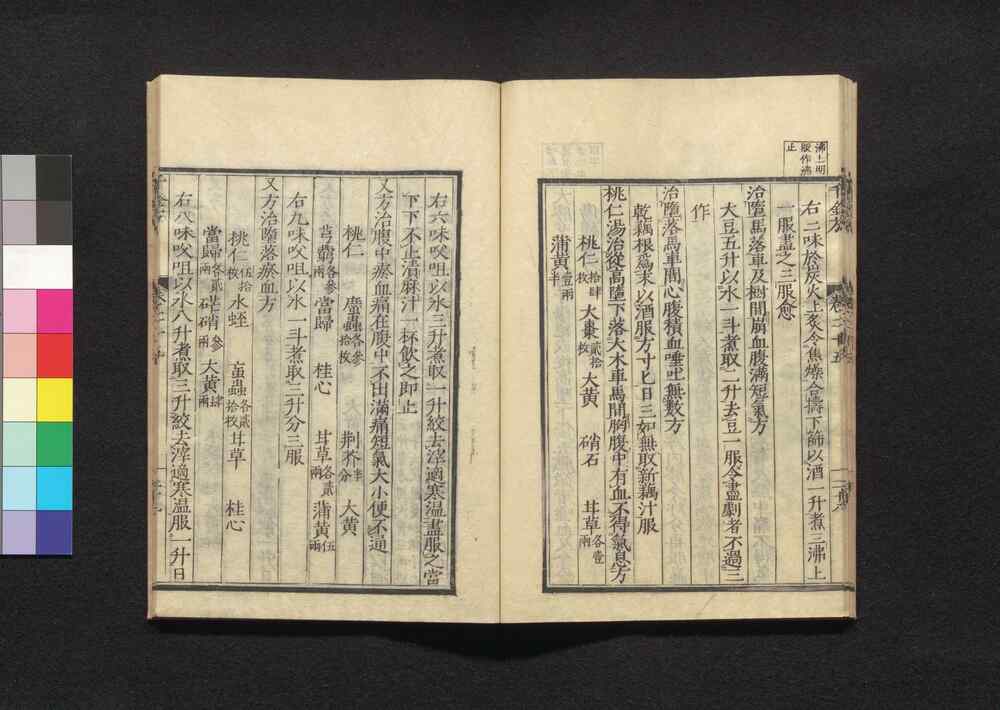 沸上明
版作沸
止
右二味於炭火上炙令焦燥合擣下篩以酒一升煮三沸上
一服盡之三服愈
治墮馬落車及樹間崩血腹滿短氣方
大豆五升以水一斗煮取二升去豆一服令盡劇者不過三
作
治墮落馬車間心腹積血唾吐無數方
乾藕根爲末以酒服方寸匕日三如無取新藕汁服
桃仁湯治從高墮下落大木車馬間胸腹中有血不得氣息方
桃仁拾肆枚 大棗貳拾枚 大黃 硝石 甘草各壹兩
蒲黃壹兩半
右六味㕮咀以水三升煮取一升絞去滓適寒温盡服之當
下下不止漬麻汁一杯飲之即止
又方治腹中瘀血痛在腹中不出滿痛短氣大小便不通
桃仁 䗪蟲各參拾枚 荆芥半分 大黃
芎藭各參兩 當歸 桂心 甘草各貳兩 蒲黃伍兩
右九味㕮咀以水一斗煮取三升分三服
又方治墮落瘀血方
桃仁伍拾枚 水蛭 䖟蟲各貳拾枚 甘草 桂心
當歸各貳兩 芒硝參兩 大黃肆兩
右八味㕮咀以水八升煮取三升絞去滓適寒温服一升日